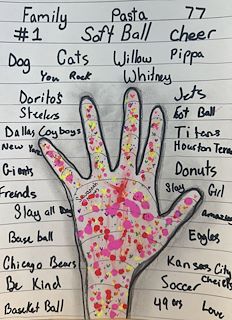 Family Pasta 77
#1 Soft Ball Cheer
Dog Cats Willow Pippa
You Rock Whitney
Doritos Jets
Steelers Eat Ball
Dallas Cowboys Titans
New York Houston Texans
Giants Donuts
Freinds Slay Girl
Slay all Day Amazing
Base ball Eagles
Chicago Bears Kansas City
Chiefs
Be Kind Soccer
Basket Ball 49ers Love